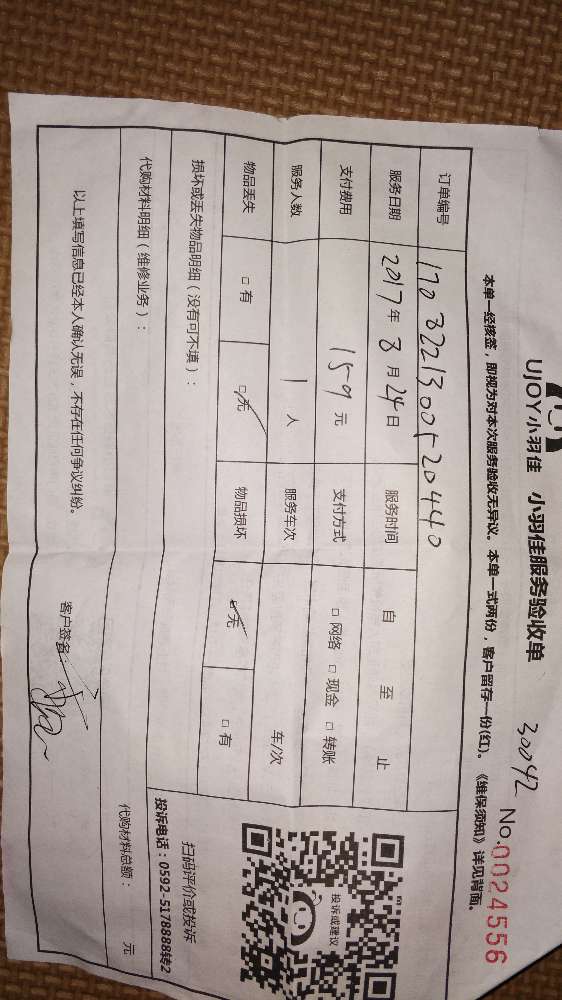 UJOY小羽佳 小羽佳服务验收单
30042
No.0024556
本单一经核签，即视为对本次服务验收无异议。本单一式两份，客户留存一份(红)。《维保须知》详见背面。
订单编号 170322130520440
服务日期 2017年3月24日 服务时间 自 至 止
支付费用 159元 支付方式 □网络 □现金 □转账
服务人数 1人 服务车次 车/次
物品丢失 □有 □无 物品损坏 □无 □有
损坏或丢失物品明细（没有可不填）：
代购材料明细（维修业务）：
代购材料总额： 元
以上填写信息已经本人确认无误，不存在任何争议纠纷。
客户签名：
投诉或建议
扫码评价或投诉
投诉电话：0592-5178888转2